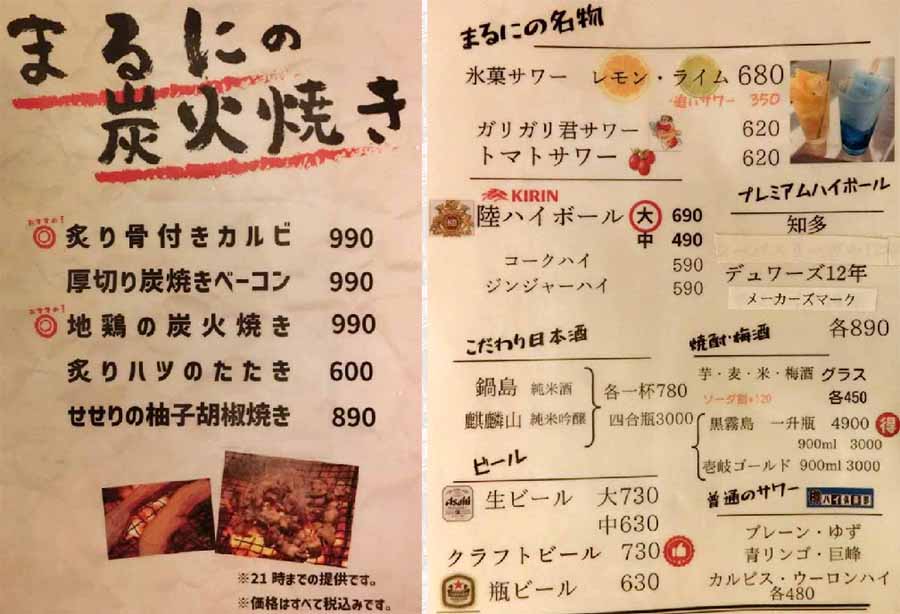 まるにの
炭火焼き
おすすめ!
炙り骨付きカルビ 990
厚切り炭焼きベーコン 990
おすすめ!
地鶏の炭火焼き 990
炙りハツのたたき 600
せせりの柚子胡椒焼き 890
※21時までの提供です。
※価格はすべて税込みです。
まるにの名物
氷菓サワー レモン・ライム 680
追いサワー 350
ガリガリ君サワー 620
トマトサワー 620
KIRIN
陸ハイボール 大 690
中 490
コークハイ 590
ジンジャーハイ 590
プレミアムハイボール
知多
デュワーズ12年
メーカーズマーク
各890
こだわり日本酒
鍋島 純米酒 各一杯780
麒麟山 純米吟醸 四合瓶3000
焼酎・梅酒
芋・麦・米・梅酒 グラス
ソーダ割+120 各450
黒霧島 一升瓶 4900 得
900ml 3000
壱岐ゴールド 900ml 3000
ビール
Asahi
生ビール 大730
中630
クラフトビール 730
瓶ビール 630
普通のサワー
プレーン・ゆず
青リンゴ・巨峰
カルピス・ウーロンハイ
各480